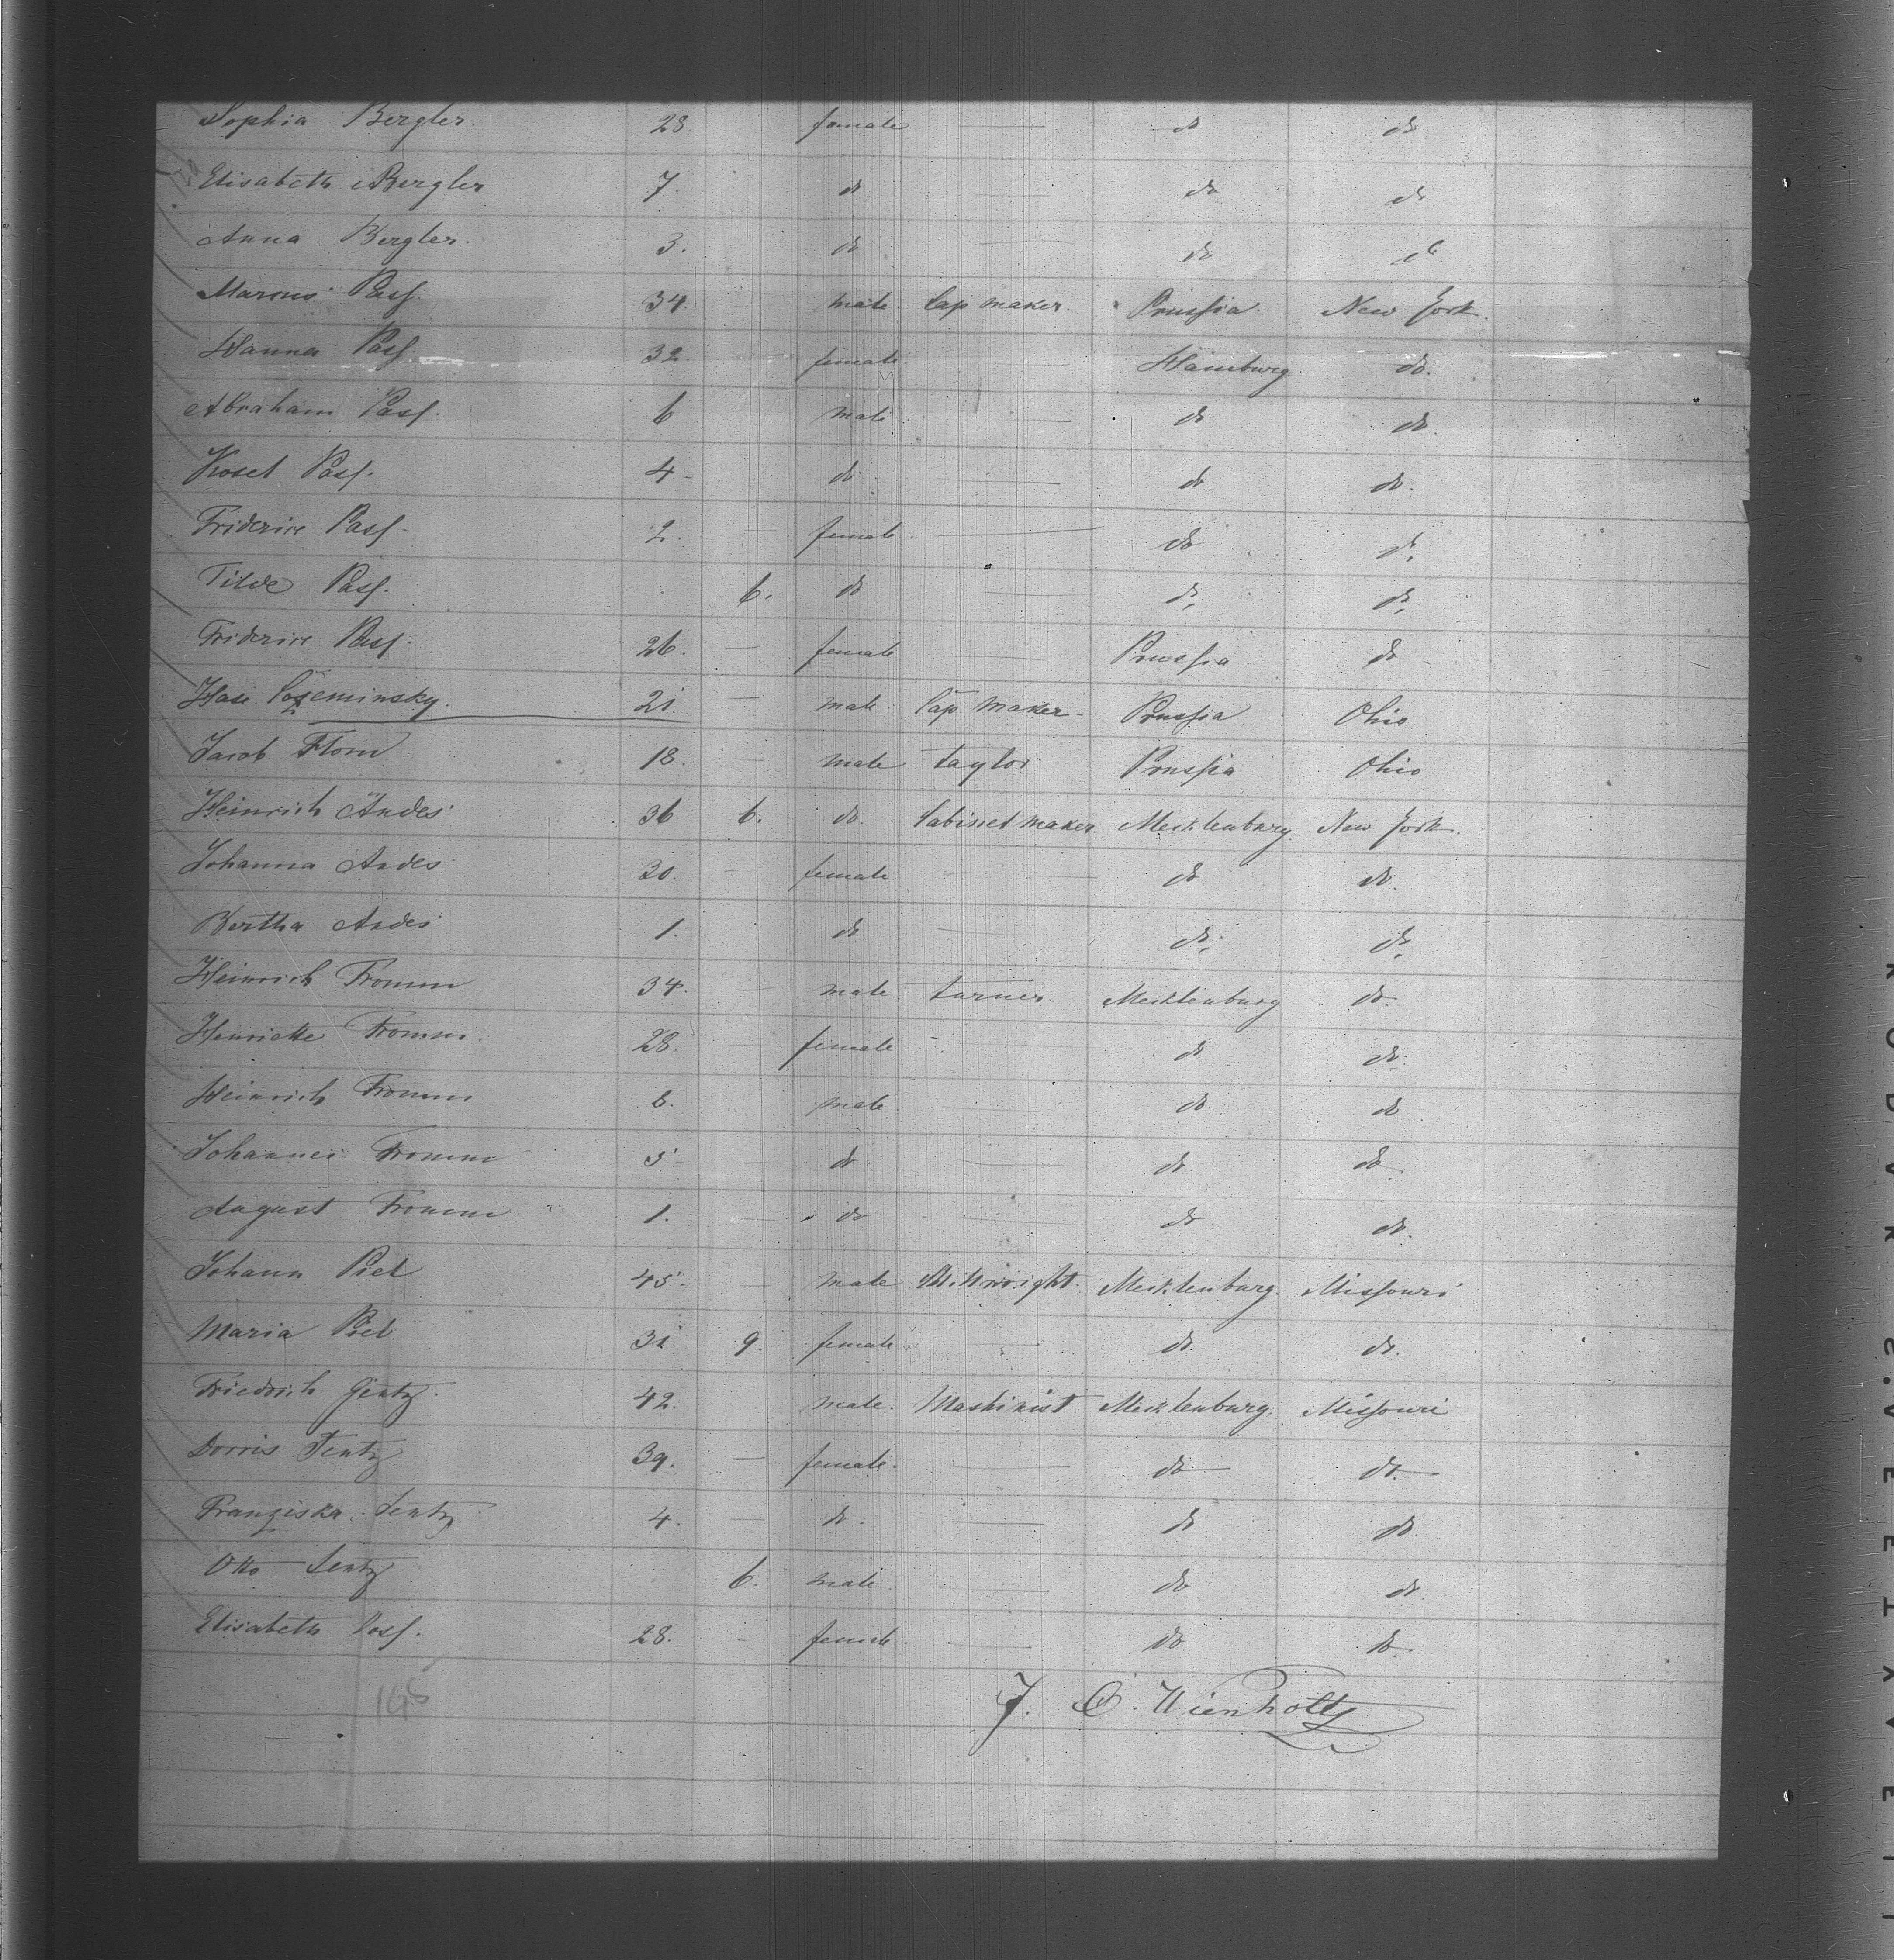 Sophia Bergler. 28 female — do do
Elisabeth Bergler 7. do — do do
Anna Bergler. 3. do — do do
Marcus Pass. 34. — male. Cap maker. Prussia. New York.
Hanna Pass. 32. — female. — Hamburg do.
Abraham Pass. 6 male. — do do.
Pass. 4 - do — do do.
Friderike Pass. 2. — female. — do do.
Tilde Pass. 6. do — do. do.
Friderike Pass. 26. — female — Prussia do
21. — male. Cap maker - Prussia Ohio
Jacob 18. — male taylor Prussia Ohio
Heinrich Andes 36 6. do. Cabinet maker. Mecklenburg. New York.
Johanna Andes 30. — female — do do.
Bertha Andes 1. do — do. do.
Heinrich Fromm 34. — male turner. Mecklenburg do.
Henriette Fromm. 28. — female — do do.
Heinrich Fromm male — do do
Johannes Fromm 5 — do — do do.
August Fromm 1. — do — do do.
Johann Piel 45. — male Millwright. Mecklenburg. Missouri
Maria Piel 31 9. female. — do. do.
Friedrich Jentz. 42. male. Mashinist Mecklenburg. Missouri
Dorris Jentz 39. — female. — do do.
Franziska Jentz 4. — do. — do. do.
Otto Jentz 6. male. — do do.
Elisabeth 28. - female. — do do.
J. Wienholtz